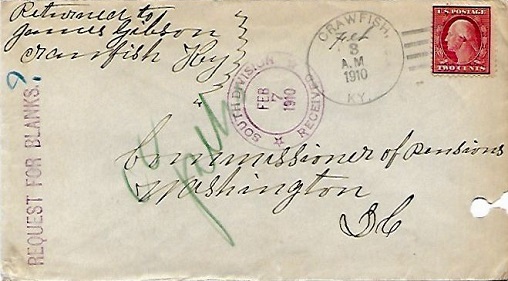 Returned to
James Gibson
Crawfish Ky
CRAWFISH,
Feb
3
A.M
1910
KY.
U.S. POSTAGE
TWO CENTS
SOUTH DIVISION
FEB
7
1910
RECEIVED
REQUEST FOR BLANKS.
?
Commissioner of Pensions
Washington
D C